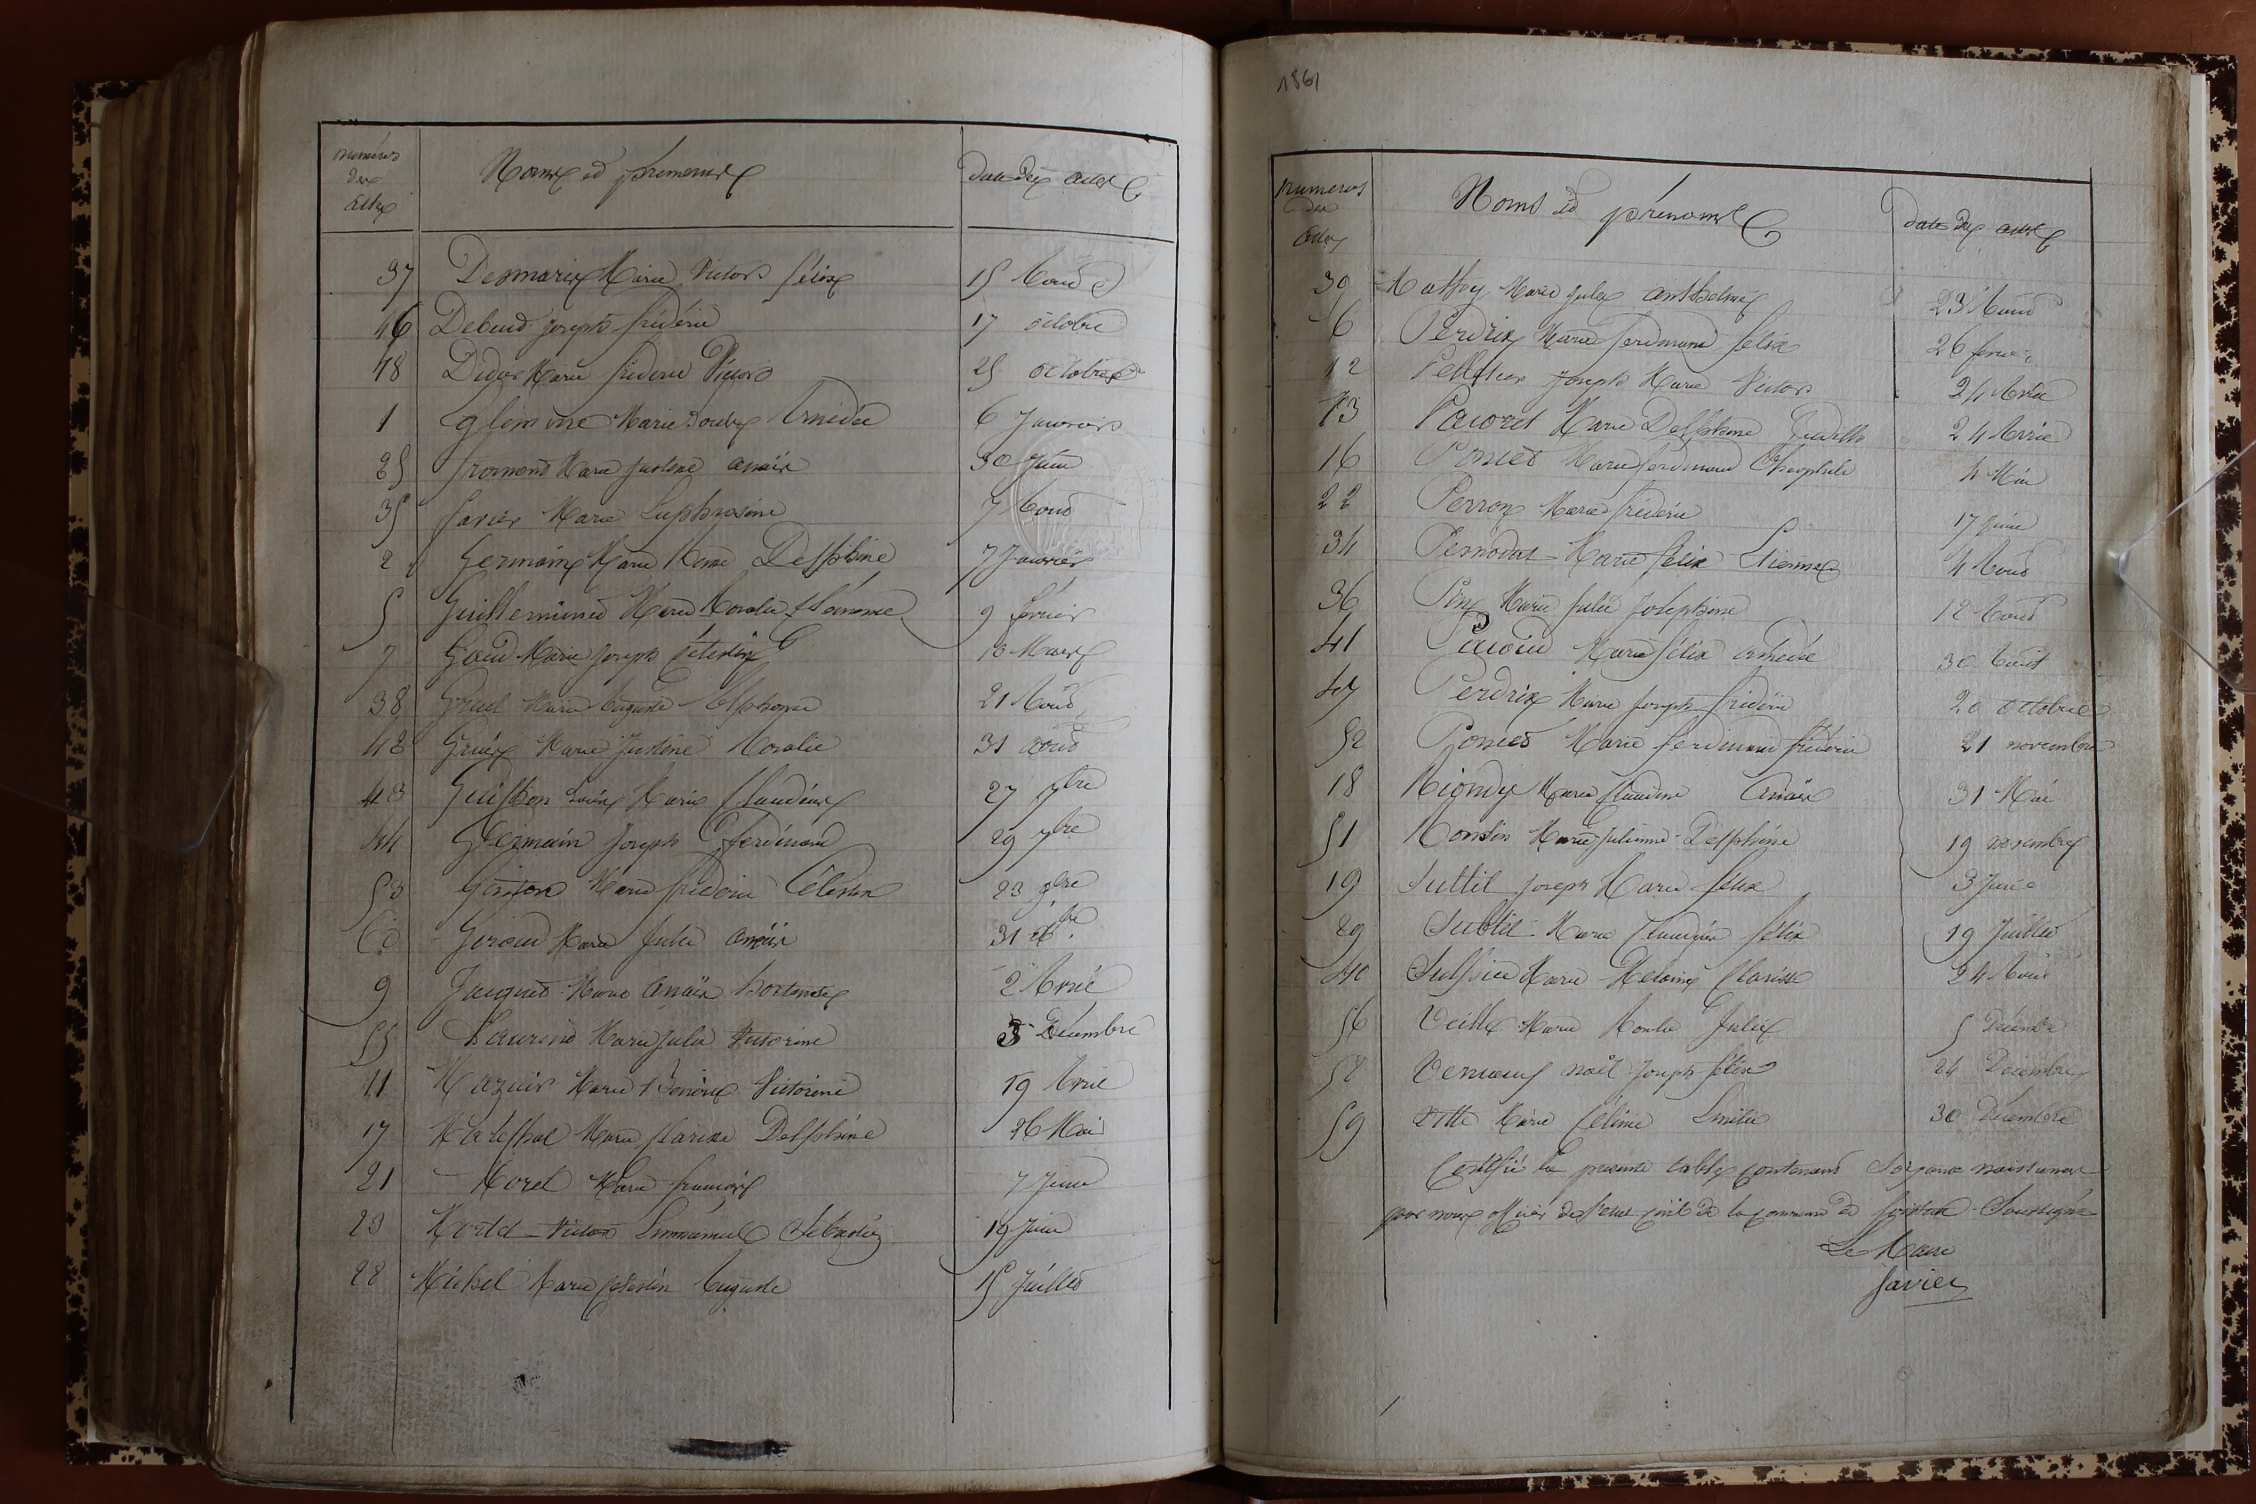 numéros des actes Noms et prénoms Date des actes
37 Desmaris Marie Victor félix 15 Aout
46 Debeud Joseph frédéric 17 octobre
48 Didor Marie frédéric Victor 25 octobre
1 Marie Amédée 6 Janvier
25 fromond Marie Justine anaïs 30 Juin
35 favier Marie Euphrosine 7 Aout
2 Germain Marie Delphine 7 Janvier
5 Guilleminet Marie Rosalie 9 févrie
7 Marie Joseph Célestin 13 Mars
38 Marie Auguste Alphonse 21 Aout
42 Marie Justine Rosalie 31 aout
43 Marie Claudine 27 7bre
44 Germain Joseph ferdinand 29 7bre
53 Marie frédéric Célestin 23 9bre
60 Giroud Marie Julie anaïs 31 Xbre
9 Jacquet Marie anaïs hortense 2 Avril
55 Laurend Marie Julie Victorine 3 Décembre
11 Mazuir Marie Victorine 19 Avril
17 Maréchal Marie Clarisse Delphine 26 Mai
21 Morel Marie françois 7 Juin
23 Victor Emmanuel Sébastien 19 Juin
28 Michel Marie Célestin Auguste 15 Juillet
1861
numeros des actes Noms et prénoms date des actes
39 Marie Jules anthelme 23 Aout
6 Perdrix Marie ferdinand félix 26 février
12 Pelletier Joseph Marie Victor 24 Avril
13 Marie Delphine 24 Avril
16 Poncet Marie ferdinand Théophile 4 Mai
22 Perron Marie frédéric 17 Juin
34 Pernodat Marie félix Etienne 4 Aout
36 Marie Julie Joséphine 12 Aout
41 Marie félix Amédée 30 Aout
47 Perdrix Marie Joseph frédéric 20 octobre
52 Poncet Marie ferdinand frédéric 21 novembre
18 Riondy Marie Claudine Anaïs 31 Mai
51 Marie Julienne Delphine 19 novembre
19 Subtil Joseph Marie félix 3 Juin
29 Subtil Marie Claudine félix 19 Juillet
40 Sulpice Marie Mélanie Clarisse 24 Aout
56 Marie Julie 5 Décembre
58 noël Joseph félix 24 Décembre
59 Vitte Marie Céline Emilie 30 Décembre
Certifié la présente table contenant Soixante naissances
par nous officier de l'état civil de la commune de Soussigné
Le Maire
favier